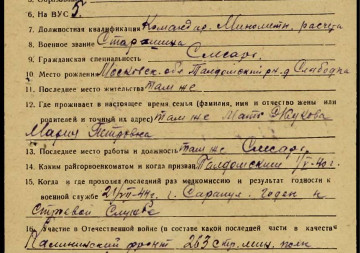 6. На ВУС 5.
7. Должностная квалификация Командир. Минометн. расчета
8. Военное звание Старшина
9. Гражданская специальность Слесарь.
10. Место рождения Московск. обл Талдомский рн. д.
11. Последнее место жительства там же
12. Где проживает в настоящее время семья (фамилия, имя и отчество жены или
родителей и точный их адрес) там же Мать
Мария Петровна
13. Последнее место работы и должность там же Слесарь
14. Каким райгорвоенкоматом и когда призван Талдомским 40 г.
15. Когда и где проходил последний раз медкомиссию и результат годности к
военной службе 44 г. г. Сарапул. Годен к
строевой службе
16. Участие в Отечественной войне (в составе какой последней части в качестве
Калининский фронт 263 стр. полк